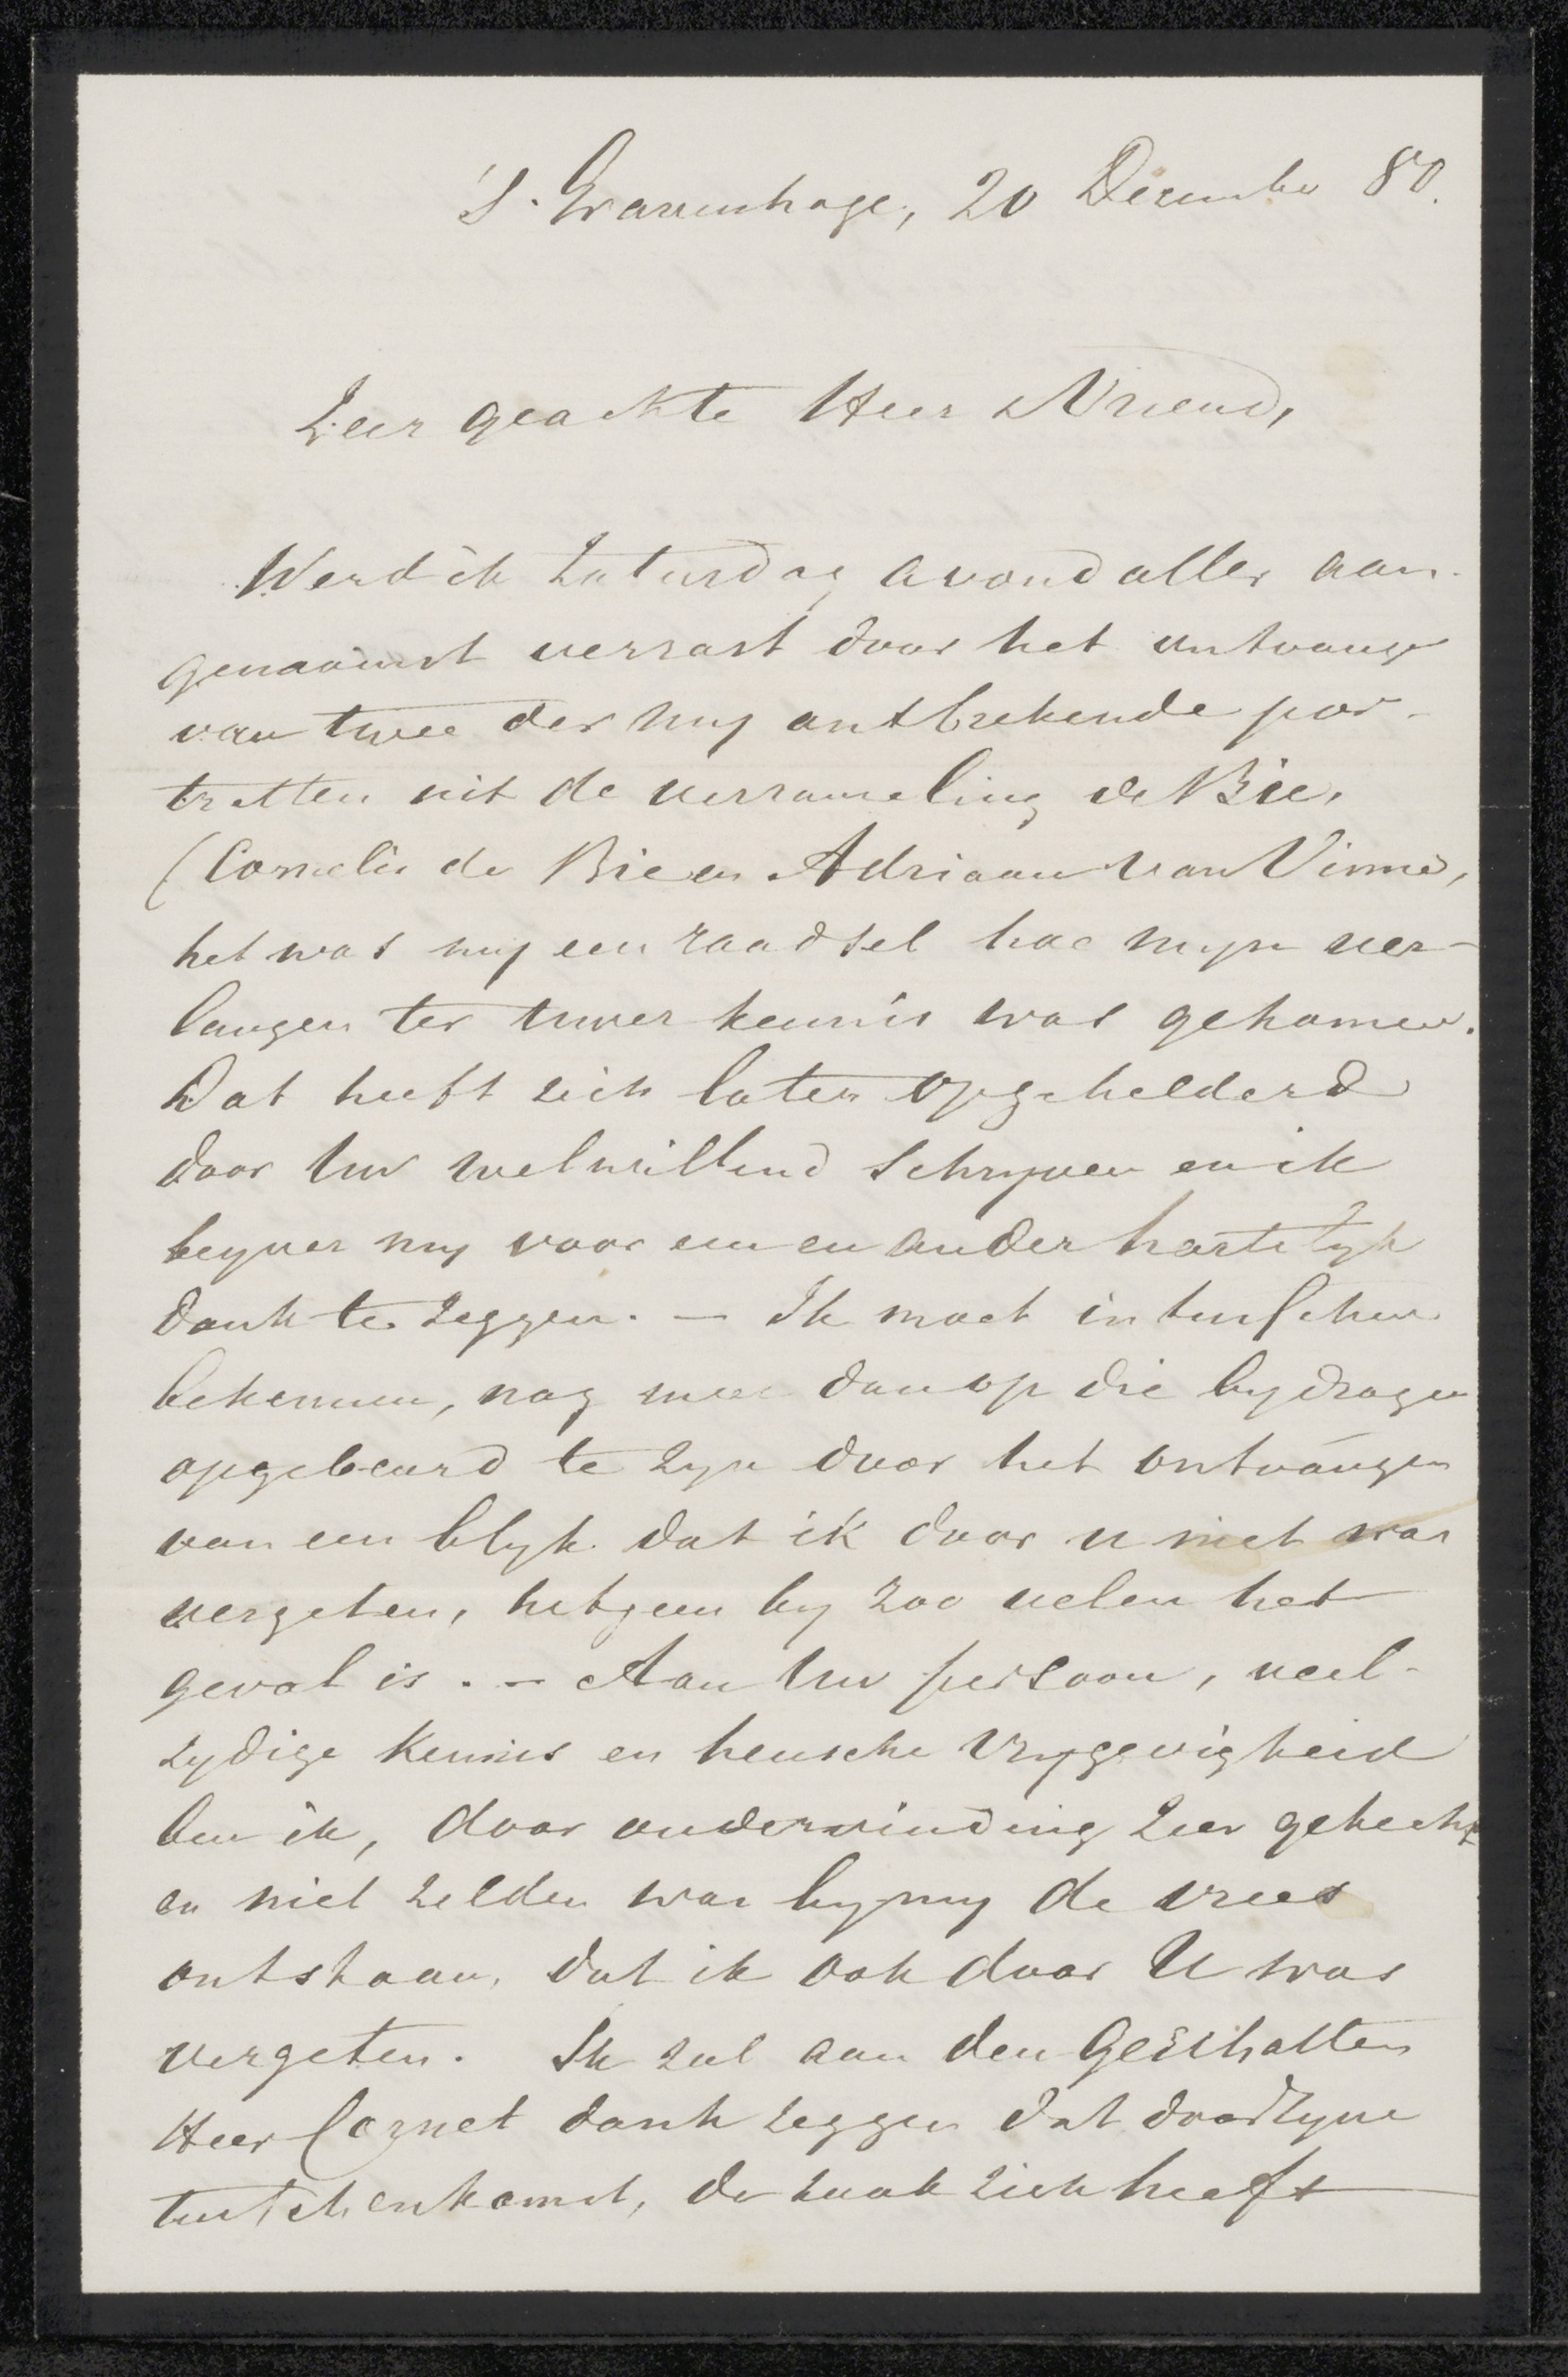 's. Gravenhage, 20 December 80.
Zeer geachte Heer & Vriend,
Werd ik Zaturdag avond aller aan-
genaamst verrast door het ontvangen
van twee der my ontbrekende por-
tretten uit de verzameling de Bie,
(Cornelis de Bie en Adriaan van Vinne,
het was my een raadsel hoe myn ver-
langen ter Uwer kennis was gekomen.
Dat heeft zich later opgehelderd
door Uw welwillend schryven en ik
beyver my voor een en ander hartelyk
dank te zeggen. — Ik moet intusschen
bekennen, nog meer dan op die bydragen
opgebeurd te zyn door het ontvangen
van een blyk dat ik door u niet was
vergeten, hetgeen by zoo velen het
geval is. – Aan Uw persoon, veel-
zydige kennis en heusche vrygevigheid
ben ik, door ondervinding zeer gehecht
en niet zelden was by my de vrees
ontstaan, dat ik ook door U was
vergeten. Ik zal aan den Geëerthatten
Heer Cornet dank zeggen dat door zyne
tusschenkomst, de zaak zich heeft